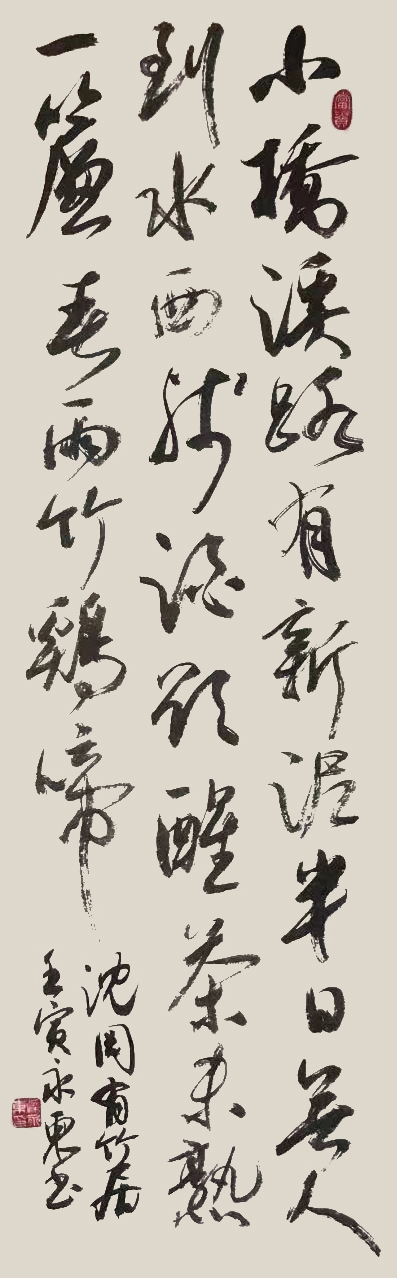 小橋溪路有新泥半日無人
到水西殘酒欲醒茶未熟
一簾春雨竹鷄啼
沈周有竹居
壬寅永東書